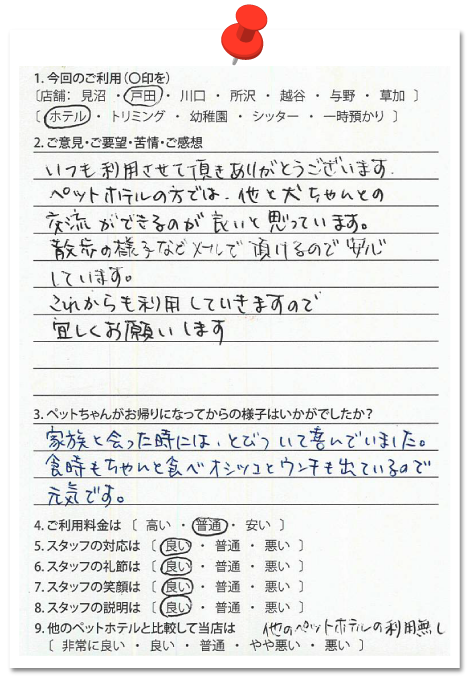 1. 今回のご利用(〇印を)
〔店舗: 見沼 ・ 戸田 ・ 川口 ・ 所沢 ・ 越谷 ・ 与野 ・ 草加 〕
〔 ホテル ・ トリミング ・ 幼稚園 ・ シッター ・ 一時預かり 〕
2. ご意見・ご要望・苦情・ご感想
いつも利用させて頂きありがとうございます.
ペットホテルの方では、他と犬ちゃんとの
交流ができるのが良いと思っています。
散歩の様子などメールで頂けるので安心
しています。
これからも利用していきますので
宜しくお願いします
3. ペットちゃんがお帰りになってからの様子はいかがでしたか?
家族と会った時には、とびついて喜んでいました。
食時もちゃんと食べオシッコとウンチも出ているので
元気です。
4. ご利用料金は 〔 高い ・ 普通 ・ 安い 〕
5. スタッフの対応は 〔 良い ・ 普通 ・ 悪い 〕
6. スタッフの礼節は 〔 良い ・ 普通 ・ 悪い 〕
7. スタッフの笑顔は 〔 良い ・ 普通 ・ 悪い 〕
8. スタッフの説明は 〔 良い ・ 普通 ・ 悪い 〕
9. 他のペットホテルと比較して当店は 他のペットホテルの利用無し
〔 非常に良い ・ 良い ・ 普通 ・ やや悪い ・ 悪い 〕